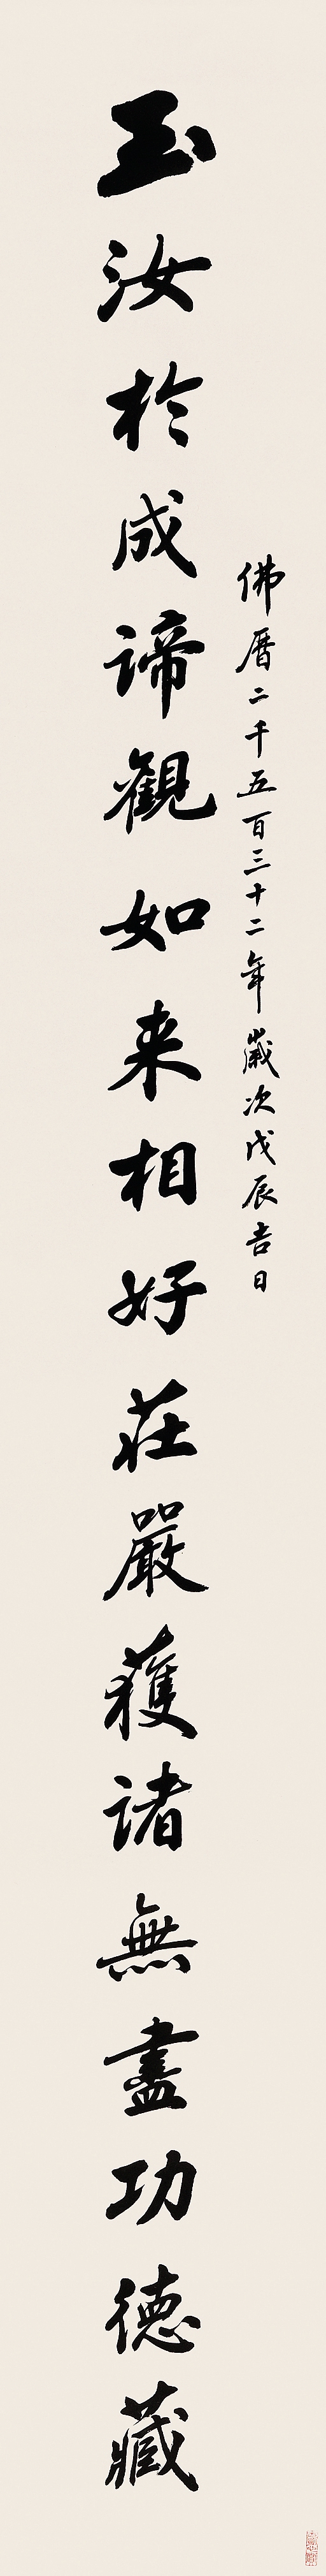 佛曆二千五百三十二年歲次戊辰吉日
玉汝於成諦觀如来相好莊嚴獲諸無盡功德藏